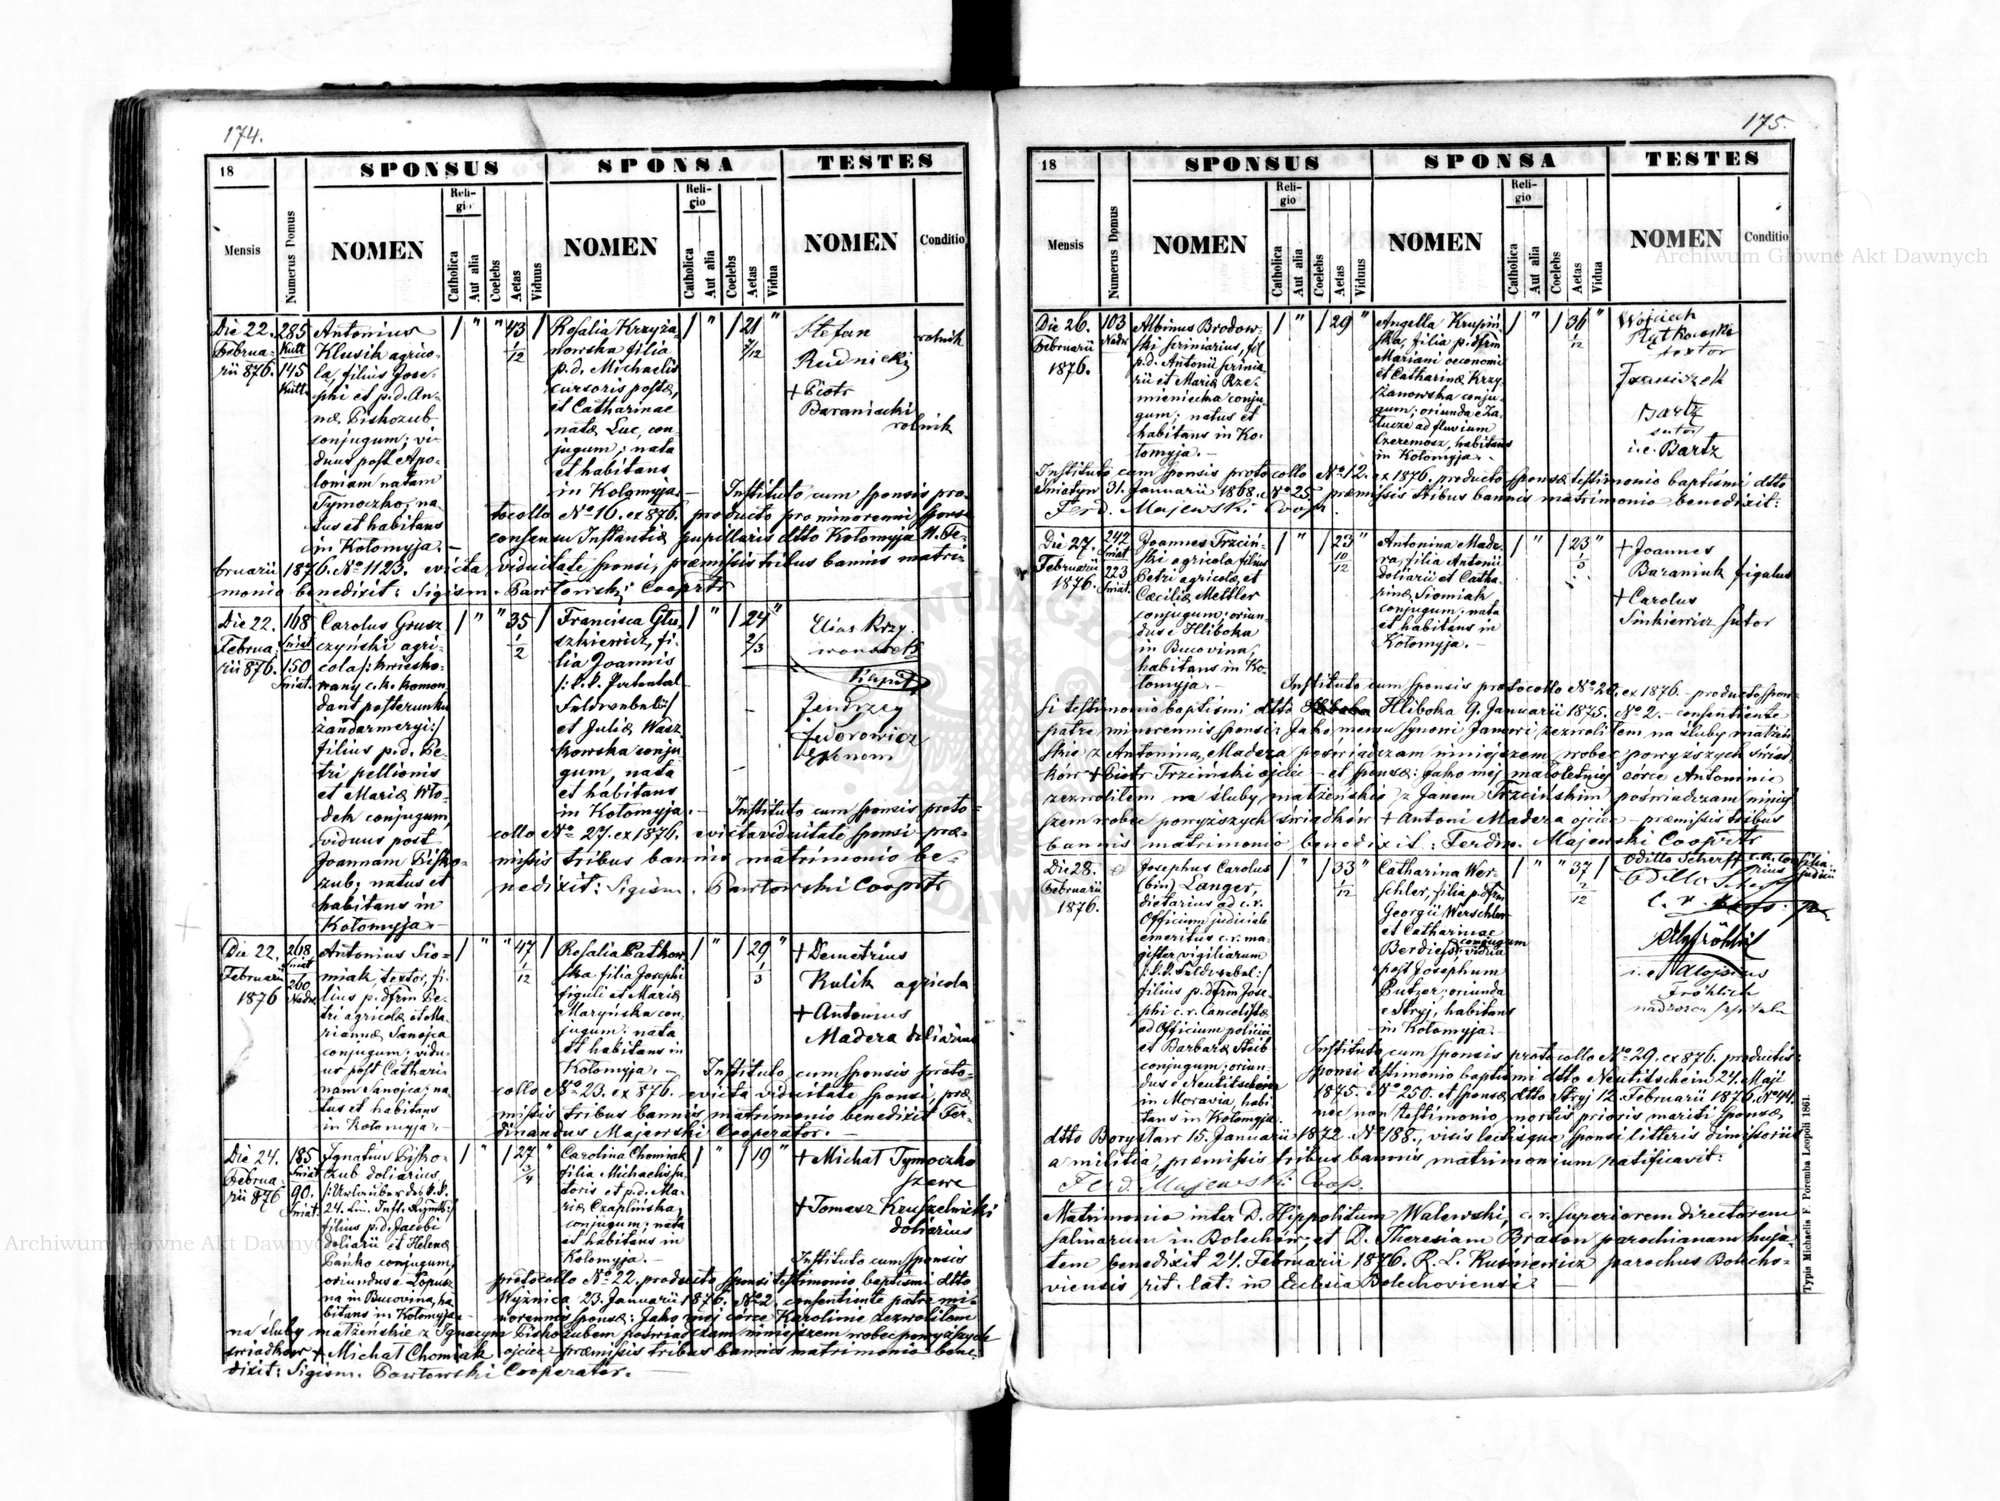 174.
18
SPONSUS
SPONSA
TESTES
Mensis
Numerus Domus
NOMEN
Religio
Catholica
Aut alia
Coelebs
Aetas
Viduus
NOMEN
Religio
Catholica
Aut alia
Coelebs
Aetas
Vidua
NOMEN
Conditio
Die 22.
Februa-
rii 876.
285
Kutt
145
Kutt.
Antonius
Klusik agrico-
la, filius Jose-
phi et p.d. An-
næ Piskozub
conjugum; vi-
duus post Apo-
loniam natam
Tymoczko; na-
tus et habitans
in Kołomyja. –
/ " " 43 /
1/12
Rosalia Krzyża-
nowska filia
p.d. Michaelis
cursoris postæ,
et Catharinae
natæ Luc, con-
jugum; nata
et habitans
in Kołomyja. –
/ " / 21 "
7/12
Stefan
Rudnicki
rolnik
+ Piotr
Baraniecki
rolnik
Instituto cum sponsis pro-
tocollo No 16. ex 876. producto pro minorenni sponsa
consensu Instantiæ pupillaris dtto Kołomyja 11. Fe-
bruarii 1876. No 1123. evicta viduitate sponsi, præmissis tribus bannis matri-
monio benedixit: Sigism. Pawłowski Cooprtr
Die 22.
Februa-
rii 876.
168
Sniat
150
Sniat.
Carolus Grusz-
czyński agri-
cola /: kwiesko-
wany c.k. komen-
dant posterunku
żandarmeryi:/
filius p.d. Pe-
tri pellionis
et Mariæ Wło-
dek conjugum,
viduus post
Joannam Pisko-
zub; natus et
habitans in
Kołomyja. –
/ " " 35 /
1/2
Francisca Glu-
szkiewicz, fi-
lia Joannis
/: k.k. Patental
Feldwebel:/
et Juliæ Wasz-
kowska conju-
gum, nata
et habitans
in Kołomyja. –
/ " / 24 "
2/3
Elias Krzy-
wonos
Jendrzey
Fedorowicz
Ekonom
Instituto cum sponsis proto-
collo No 27. ex 1876. evicta viduitate sponsi præ-
missis tribus bannis matrimonio be-
nedixit: Sigism. Pawłowski Cooprtr
Die 22.
Februarii
1876
268
Sniat
260
Nadw.
Antonius Sio-
miak, textor, fi-
lius p. dfrm Pe-
tri agricolæ et Ma-
riannæ Sanojca
conjugum; vidu-
us post Cathari-
nam Sanojca; na-
tus et habitans
in Kołomyja. –
/ " " 47 /
1/12
Rosalia Patkow-
ska filia Josephi
figuli et Mariæ
Maryńska con-
jugum; nata
et habitans in
Kołomyja. –
/ " / 29 "
1/3
+ Demetrius
Kulik agricola
+ Antonius
Madera doliarius
Instituto cum sponsis proto-
collo No 23. ex 876. evicta viduitate sponsi, præ-
missis tribus bannis matrimonio benedixit Fer-
dinandus Majewski Cooperator. –
Die 24.
Februa-
rii 876
185
Sniat
90.
Sniat.
Ignatius Pisko-
zub doliarius
/: Urlauber des k.k.
24. Lin. Inft. Rgmts:/
filius p.d. Jacobi
doliarii et Helenæ
Pańko conjugum,
oriundus e Łopusz-
na in Bucovina, ha-
bitans in Kołomyja. –
/ " / 27 "
3/4
Carolina Chomiak
filia Michaelis su-
toris et p.d. Ma-
riæ Czaplińska,
conjugum; nata
et habitans in
Kołomyja. –
/ " / 19 "
+ Michał Tymoczko
szewc
+ Tomasz Kruszelnicki
doliarius
Instituto cum sponsis
protocollo No 22. producto sponsi testimonio baptismi dtto
Wyżnica 23. Januarii 1876. No 2. consentiente patre mi-
norennis sponsæ: Jako mój córce Karolinie zezwoliłem
na śluby małżeńskie z Ignacym Piskozubem poświadczam niniejszem wobec powyższych
świadków + Michał Chomiak ojciec – præmissis tribus bannis matrimonio bene-
dixit: Sigism. Pawłowski Cooperator. –
175.
18
SPONSUS
SPONSA
TESTES
Mensis
Numerus Domus
NOMEN
Religio
Catholica
Aut alia
Coelebs
Aetas
Viduus
NOMEN
Religio
Catholica
Aut alia
Coelebs
Aetas
Vidua
NOMEN
Conditio
Die 26.
Februarii
1876.
103
Nadw
Albinus Brodow-
ski scriniarius, fil
p.d. Antonii scrinia-
rii et Mariæ Rze-
mieniecka conju-
gum; natus et
habitans in Ko-
łomyja. –
/ " / 29 "
Angella Krupiń-
ska, filia p. dfrm
Mariani oeconomi
et Catharinæ Krzy-
żanowska conju-
gum; oriunda e Za-
łucze ad fluvium
Czeremosz, habitans
in Kołomyja. –
/ " / 36 "
1/12
Wojciech
Rytkowski
textor
Franiszek
Bartz
sutor
i.e. Bartz
Instituto cum sponsis protocollo No 12. ex 1876, producto sponsæ testimonio baptismi dtto
Śniatyn 31. Januarii 1868. No 25. præmissis tribus bannis matrimonio benedixit:
Ferd. Majewski Coop.
Die 27.
Februarii
1876.
242
Sniat
223
Sniat.
Joannes Trzciń-
ski agricola filius
Petri agricolæ, et
Cæciliæ Mettler
conjugum; oriun-
dus e Hliboka
in Bucovina,
habitans in Ko-
łomyja. –
/ " / 23 "
10/12
Antonina Made-
ra, filia Antonii
doliarii et Catha-
rinæ Siomiak
conjugum; nata
et habitans in
Kołomyja. –
/ " / 23 "
+ Joannes
Baraniuk figulus
+ Carolus
Sinkiewicz sutor
Instituto cum sponsis protocollo No 20. ex 1876 – producto spon-
si testimonio baptismi dtto Hliboka 9. Januarii 1875. No 2. – consentiente
patre minorennis sponsi: Jako memu synowi Janowi zezwoliłem na śluby małżeń-
skie z Antoniną Madera poświadczam niniejszem wobec powyższych świad-
ków + Piotr Trzciński ojciec – et sponsæ: Jako mej małoletniej córce Antoninie
zezwoliłem na śluby małżeńskie z Janem Trzcińskim poświadczam niniej-
szem wobec powyższych świadków + Antoni Madera ojciec – præmissis tribus
bannis matrimonio benedixit: Ferdin. Majewski Cooprtr
Die 28.
Februarii
1876.
0
Josephus Carolus
(bin) Langer,
dietarius ad c.r.
Officium judiciale
emeritus c.r. ma-
gister vigiliarum
/: k.k. Feldwebel:/
filius p. dfrm Jose-
phi c.r. Cancelistæ
ad Officium policiæ
et Barbaræ Steib
conjugum; oriun-
dus e Neutitschein
in Moravia, habi-
tans in Kołomyja.
/ " / 33 "
1/12
Catharina Wer-
schler, filia p. dfrm
Georgii Werschler
et Catharinae
Berdies conjugum, vidua
post Josephum
Putzer; oriunda
e Stryj, habitans
in Kołomyja. –
/ " " 37 /
2/12
Odillo Scherff c.r. consilia-
rius judicii
Alfröhlich
i.e. Aloisius
Fröhlich
nadzorca szpitala
Instituto cum sponsis protocollo No 29. ex 876. productis:
sponsi testimonio baptismi dtto Neutitschein 24. Maji
1875. No 250. et sponsæ dtto Stryj 12. Februarii 1876. No 44.
nec non testimonio mortis prioris mariti sponsæ
dtto Borysław 15. Januarii 1872. No 188., visis lectisque sponsi litteris dimissoriis
a militia, præmissis tribus bannis matrimonium ratificavit:
Ferd. Majewski Coop.
Matrimonio inter D. Hippolitum Walewski, c.r. superiorem directorem
salinarum in Bolechów, et D. Theresiam Brason parochianam huja-
tem benedixit 24. Februarii 1876. R. L. Kuśniewicz parochus Bolecho-
viensis rit. lat. in Ecclesia Bolechoviensi. –
Typis Michaelis F. Poremba Leopoli 1861.
Archiwum Główne Akt Dawnych
Archiwum Główne Akt Dawnych